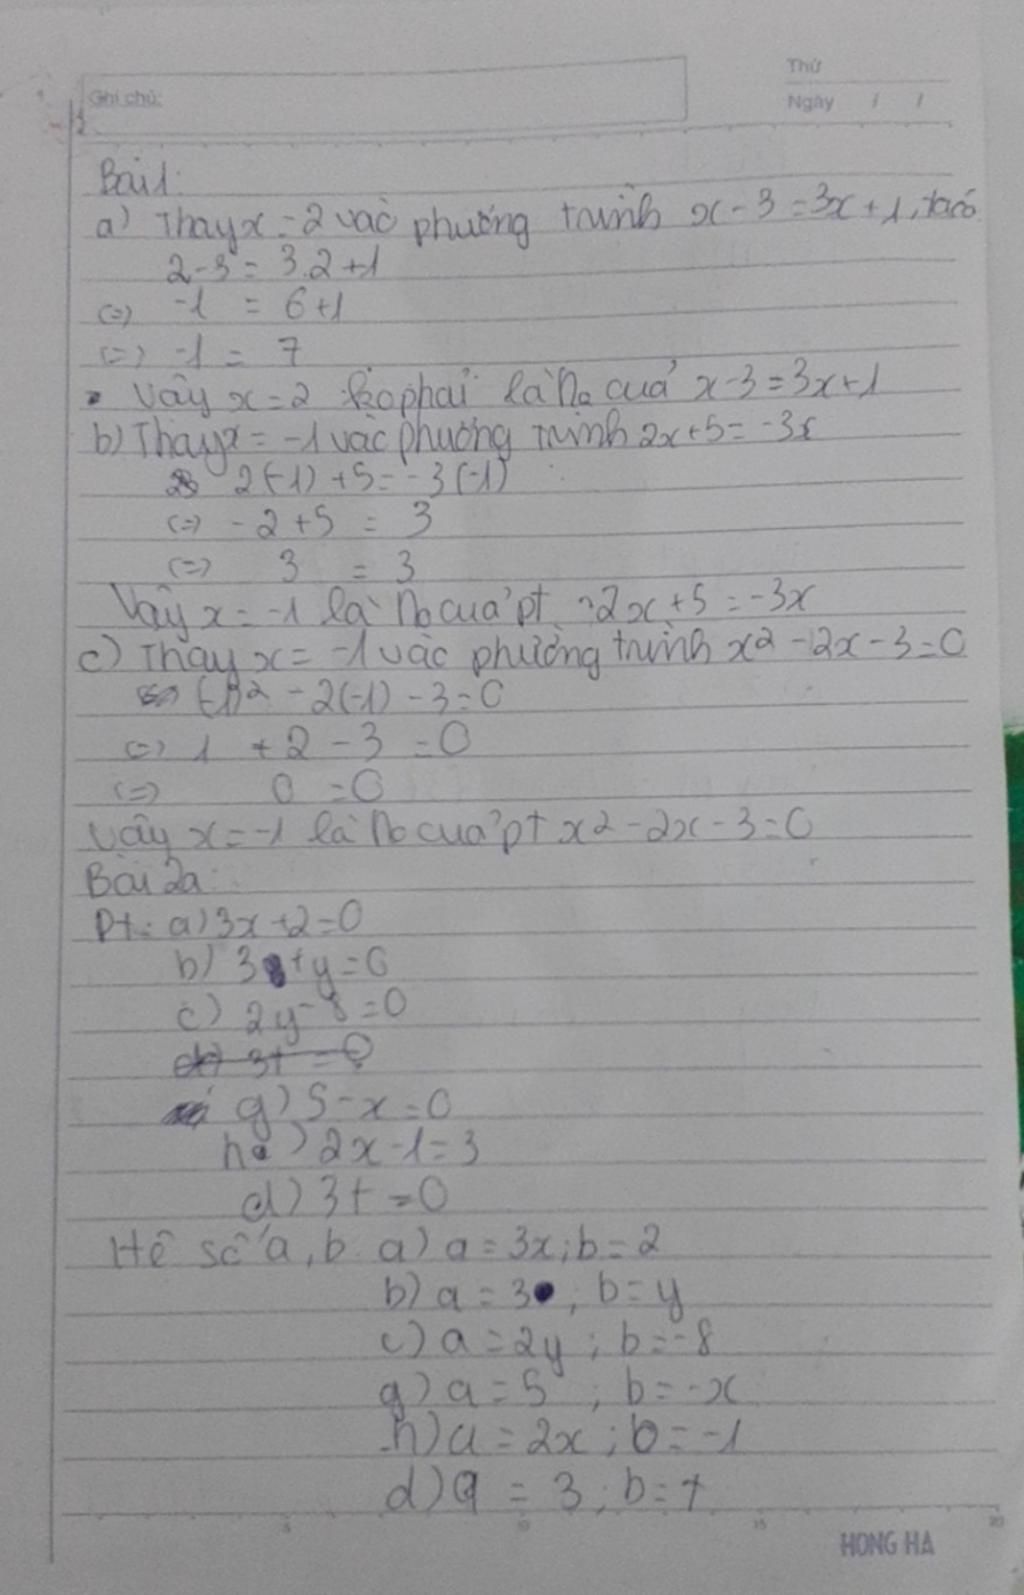 Ghi chú:
Thứ
Ngày / /
Bài 1:
a) Thay x = 2 vào phương trình x - 3 = 3x + 1, ta có
2 - 3 = 3.2 + 1
(=) -1 = 6 + 1
(=) -1 = 7
Vậy x = 2 ko phải là no của x - 3 = 3x + 1
b) Thay x = -1 vào phương trình 2x + 5 = -3x
2(-1) + 5 = -3(-1)
(=) -2 + 5 = 3
(=) 3 = 3
Vậy x = -1 là no của pt 2x + 5 = -3x
c) Thay x = -1 vào phương trình x2 - 2x - 3 = 0
(-1)2 - 2(-1) - 3 = 0
(=) 1 + 2 - 3 = 0
(=) 0 = 0
Vậy x = -1 là no của pt x2 - 2x - 3 = 0
Bài 2a:
Pt: a) 3x + 2 = 0
b) 3 + y = 0
c) 2y - 8 = 0
3t = 0
g) 5 - x = 0
h) 2x - 1 = 3
d) 3t = 0
Hệ số a, b. a) a = 3x; b = 2
b) a = 3; b = y
c) a = 2y; b = -8
g) a = 5; b = -x
h) a = 2x; b = -1
d) a = 3; b = t
5 10 15 20
HONG HA